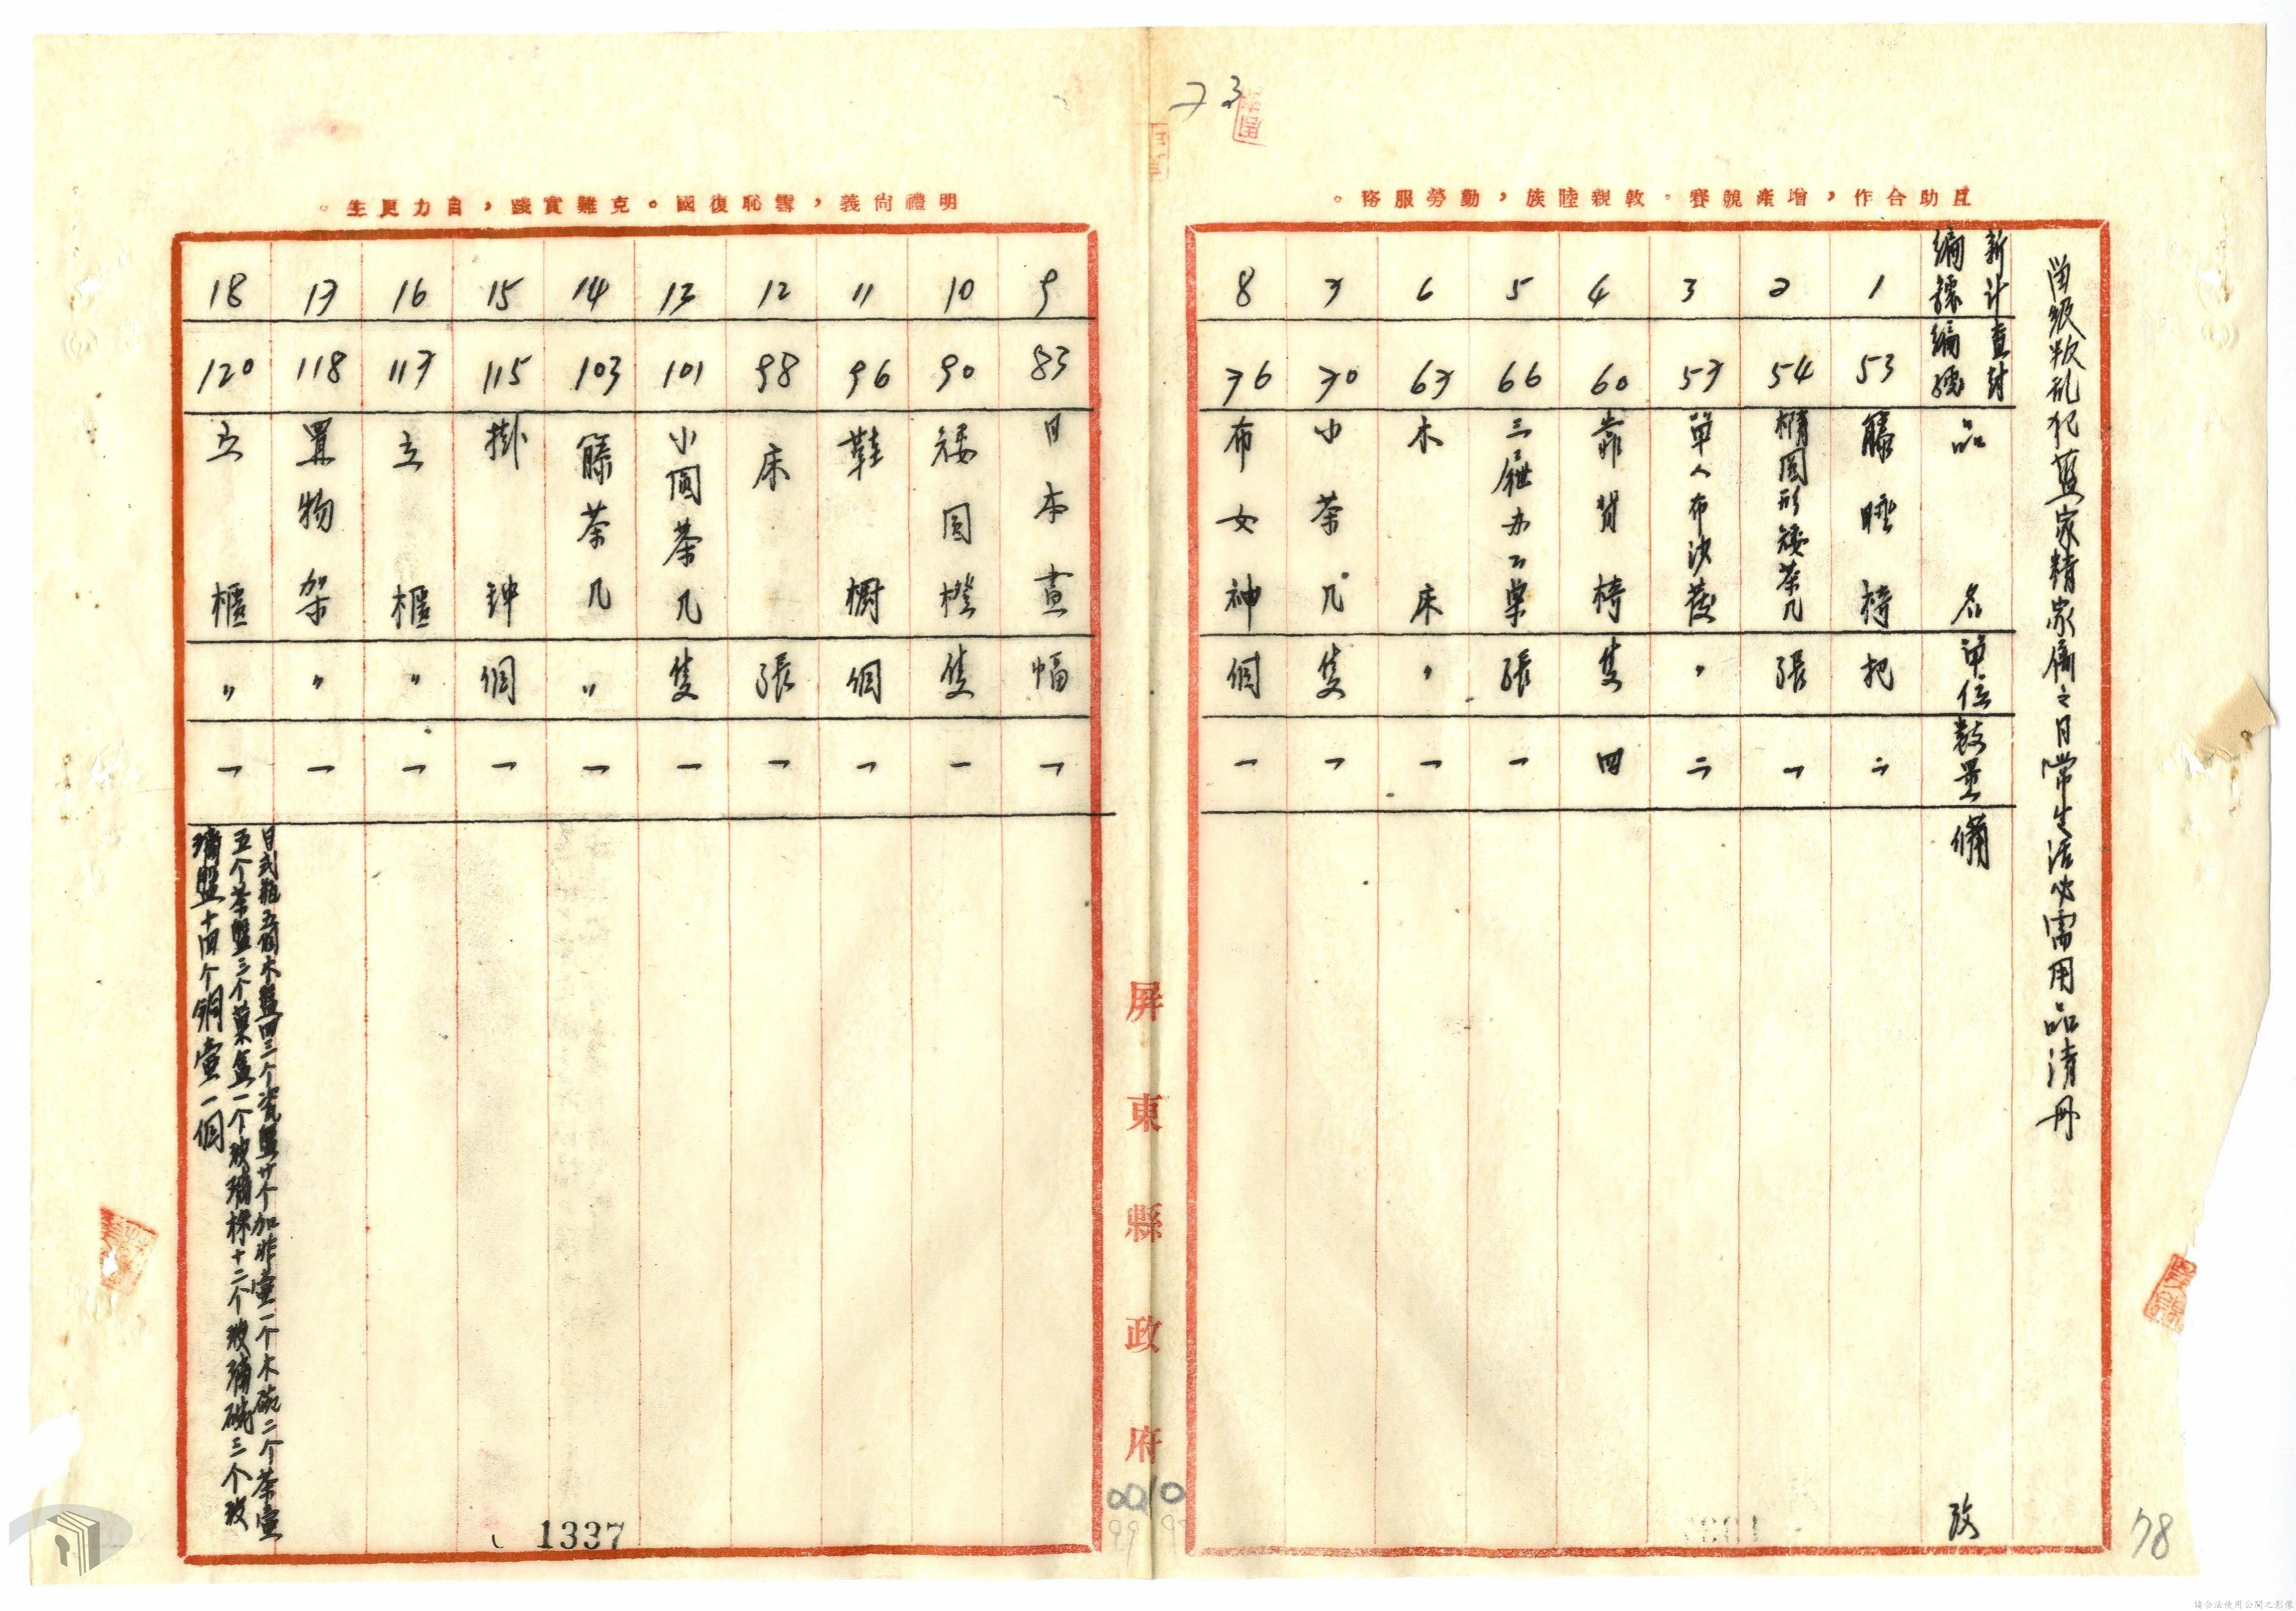 73
互助合作，增產競賽。敦親睦族，勤勞服務。
留級叛乱犯藍家精家屬之日常生活必需用品清册
新編號
計查封編號
品名
單位
數量
備攷
1 53 籐睡椅 把 二
2 54 橢圓形矮茶几 張 一
3 57 單人布沙發 〃 二
4 60 靠背椅 隻 四
5 66 三屜办公桌 張 一
6 67 木床 〃 一
7 70 小茶几 隻 一
8 76 布女神 個 一
屏東縣政府
明禮尚義，雪恥復國。克難實踐，自力更生。
9 83 日本畫 幅 一
10 90 矮圓櫈 隻 一
11 96 鞋櫥 個 一
12 98 床 張 一
13 101 小圓茶几 隻 一
14 103 籐茶几 〃 一
15 115 掛鐘 個 一
16 117 立櫃 〃 一
17 118 置物架 〃 一
18 120 立櫃 〃 一
日式瓶五個木盤四三个瓷盤廿个加非壷一个木碗二个茶壷
五个茶盤三个菓盒一个玻璃棵十二个玻璃碗三个玻
璃盤十四个銅壷一個
1337
78
請合法使用公開之影像